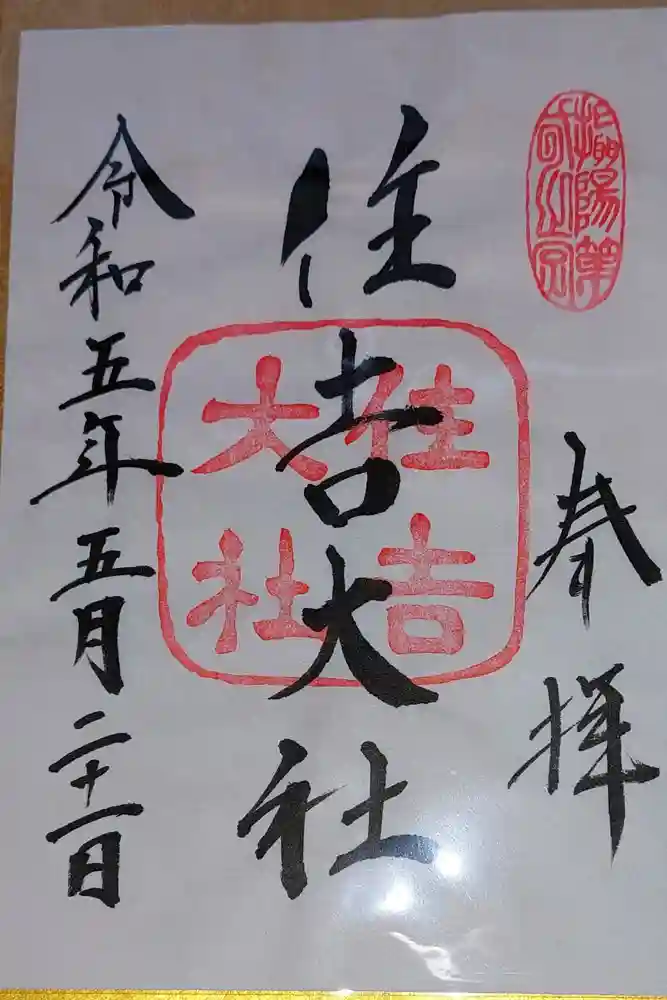 奉拝
住吉大社
住吉
大社
令和五年五月二十一日